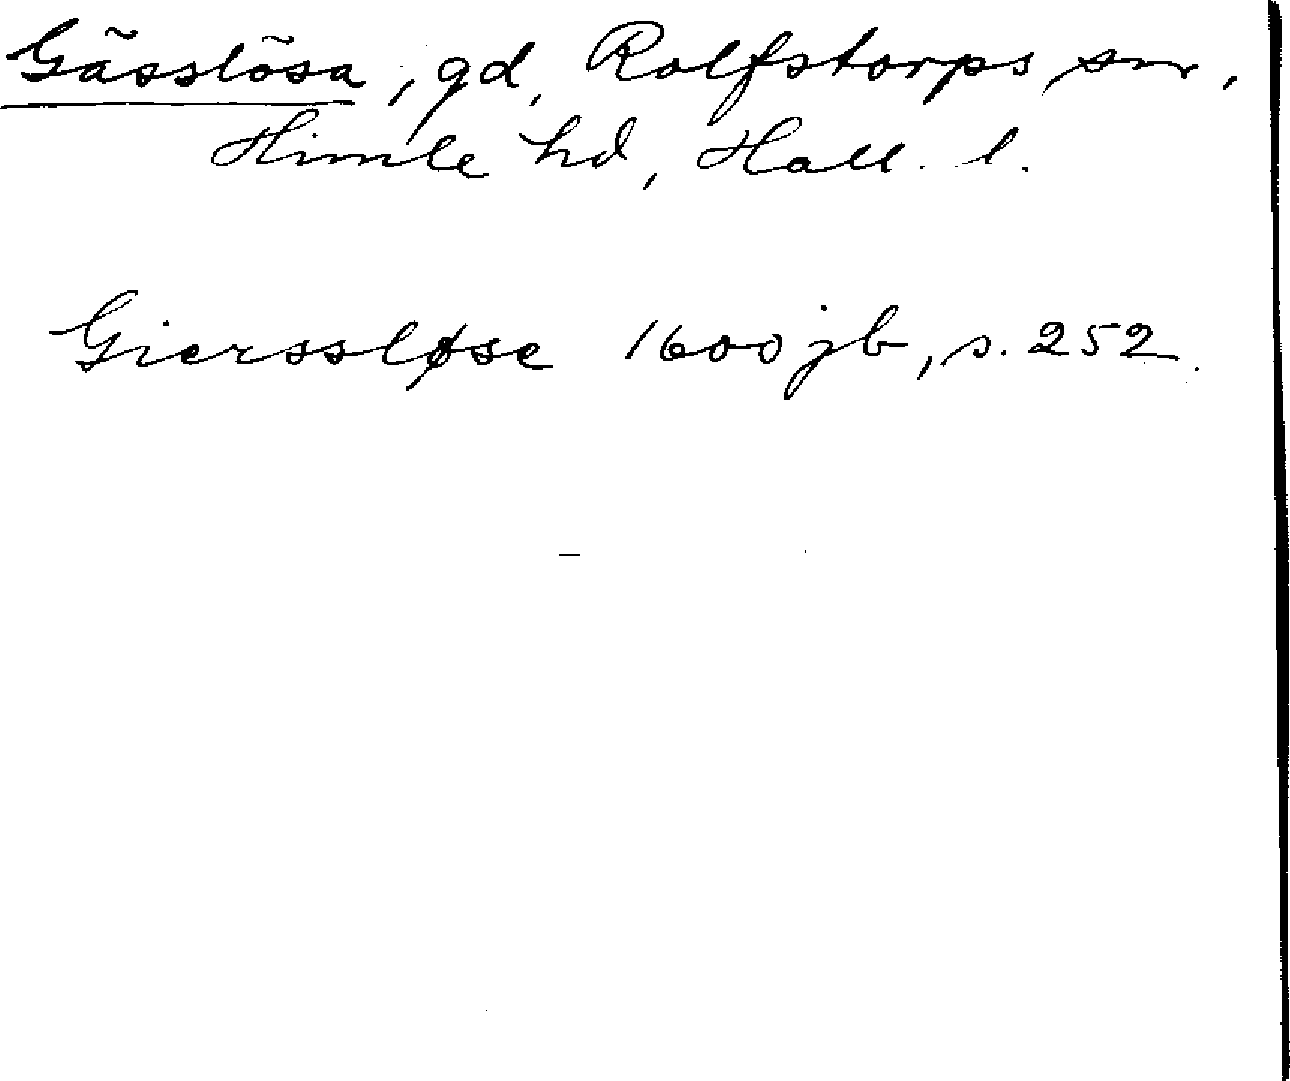 Gässlösa, gd, Rolfstorps sn,
Himle hd, Hall. l.
Gierssløse 1600 jb, s. 252.